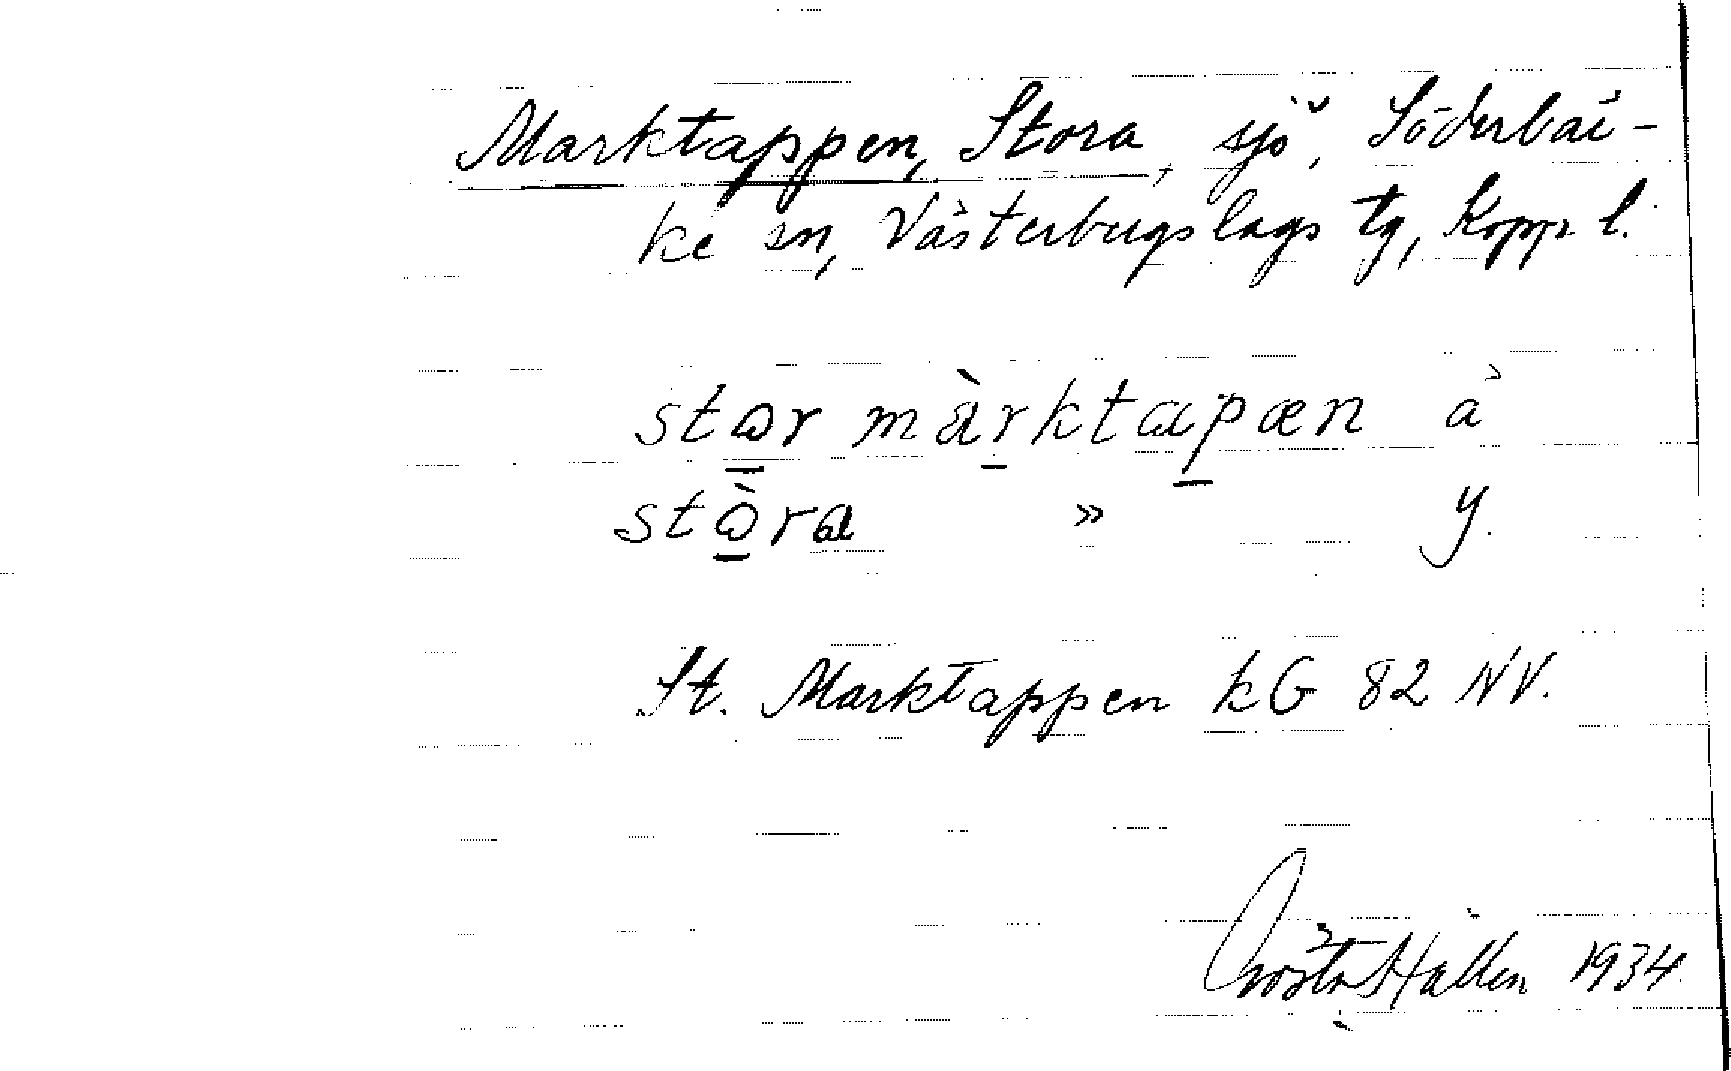 Marktappen, Stora, sjö, Söderbär-
ke sn, Västerbergslags tg, Kopp. l.
stωr màrktapæn ä
stὼra » y.
St. Marktappen kG 82 NV.
Gösta Hallén 1934.